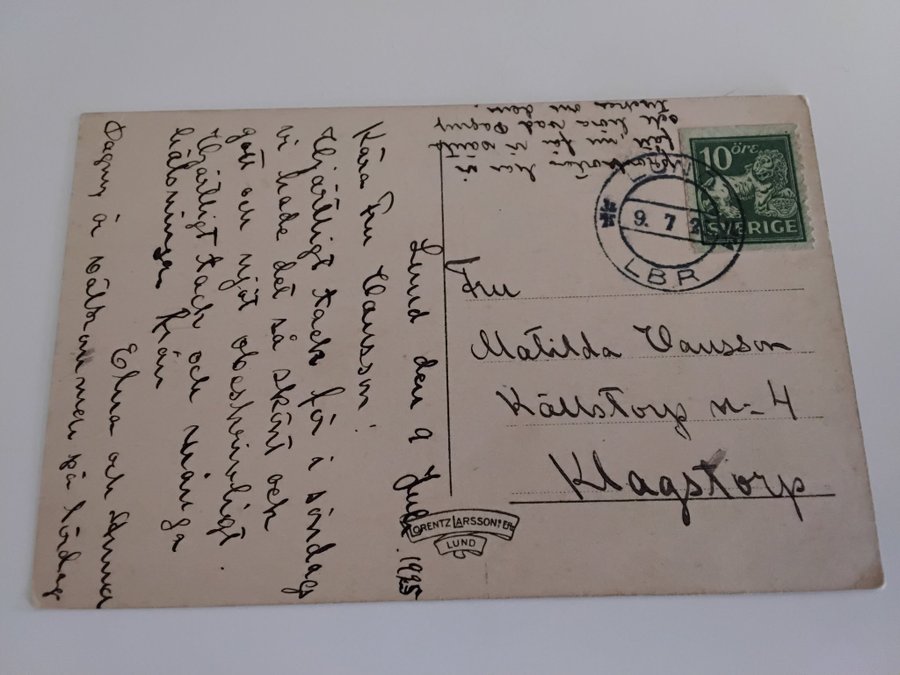 Lund den 9 Juli 1925
Kära Fru
Hjärtligt tack för i söndags
vi hade det så skönt och
gott och nytt obeskrivligt.
Hjärtligt tack och många
hälsningar från
Elna och Anna
Dagny är välkommen på lördag
10 ÖRE
SVERIGE
LUND
9. 7 2
LBR
Fru
Matilda
Källstorp n=4
Klagstorp
LORENTZ LARSSONS EFTR
LUND